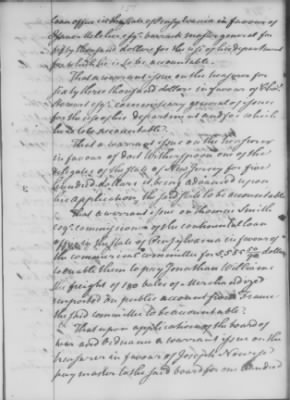 loan office in the state of Pensylvania in favour of
esqr. barrack master general for
fifty thousand dollars for the use of his department
for which he is to be accountable.
That a warrant issue on the treasurer for
sixty three thousand dollars in favour of Chas.
Stewart esqr. commissary general of issues
for the use of his department and for which
he is to be accountable.
That a warrant issue on the treasurer
in favour of doct. Witherspoon one of the
delegates of the state of New Jersey for five
hundred dollars it being advanced upon
his application, the said state to be accountable
That a warrant issue on Thomas Smith
esqr. commissioner of the continental loan
office in the state of Pensylvania in favour of
the commercial committee for dollars
to enable them to pay Jonathan Williams
the freight of 180 bales of Merchandize
imported on public account from France
the said committee to be accountable.
That upon application of the board of
war and Ordnance a warrant issue on the
treasurer in favour of Joseph Nourse
pay master to the said board for one hundred